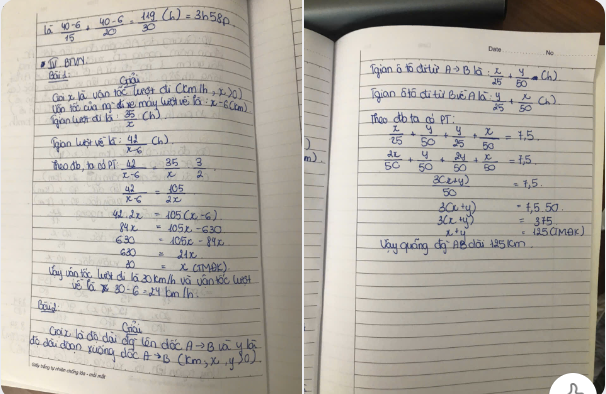 là 40-6/15 + 40-6/20 = 119/30 (h) = 3h58p.
• Tự BNVN:
Bài 1:
Giải
Gọi x là vận tốc lượt đi (km/h, x>0)
Vận tốc của ng đi xe máy lượt về là: x-6 (km)
Tgian lượt đi là: 35/x (h)
Tgian lượt về là: 42/x-6 (h)
Theo đb, ta có PT: 42/x-6 = 35/x · 3/2
42/x-6 = 105/2x
42.2x = 105(x-6)
84x = 105x - 630
630 = 105x - 84x
630 = 21x
30 = x (TMĐK)
Vậy vận tốc lượt đi là 30km/h và vận tốc lượt
về là 30-6 = 24 km/h.
Bài 2:
Giải
Gọi x là độ dài đg lên dốc A→B và y là
độ dài đoạn xuống dốc A→B (km, x, y >0)
Giấy trắng tự nhiên chống lóa - mỏi mắt
Date
No
Tgian ô tô đi từ A→B là: x/25 + y/50 (h)
Tgian ô tô đi từ B về A là: y/25 + x/50 (h)
Theo đb ta có PT:
x/25 + y/50 + y/25 + x/50 = 7,5.
2x/50 + y/50 + 2y/50 + x/50 = 7,5.
3(x+y)/50 = 7,5.
3(x+y) = 7,5.50.
3(x+y) = 375.
x+y = 125 (TMĐK)
Vậy quãng đg AB dài 125km.